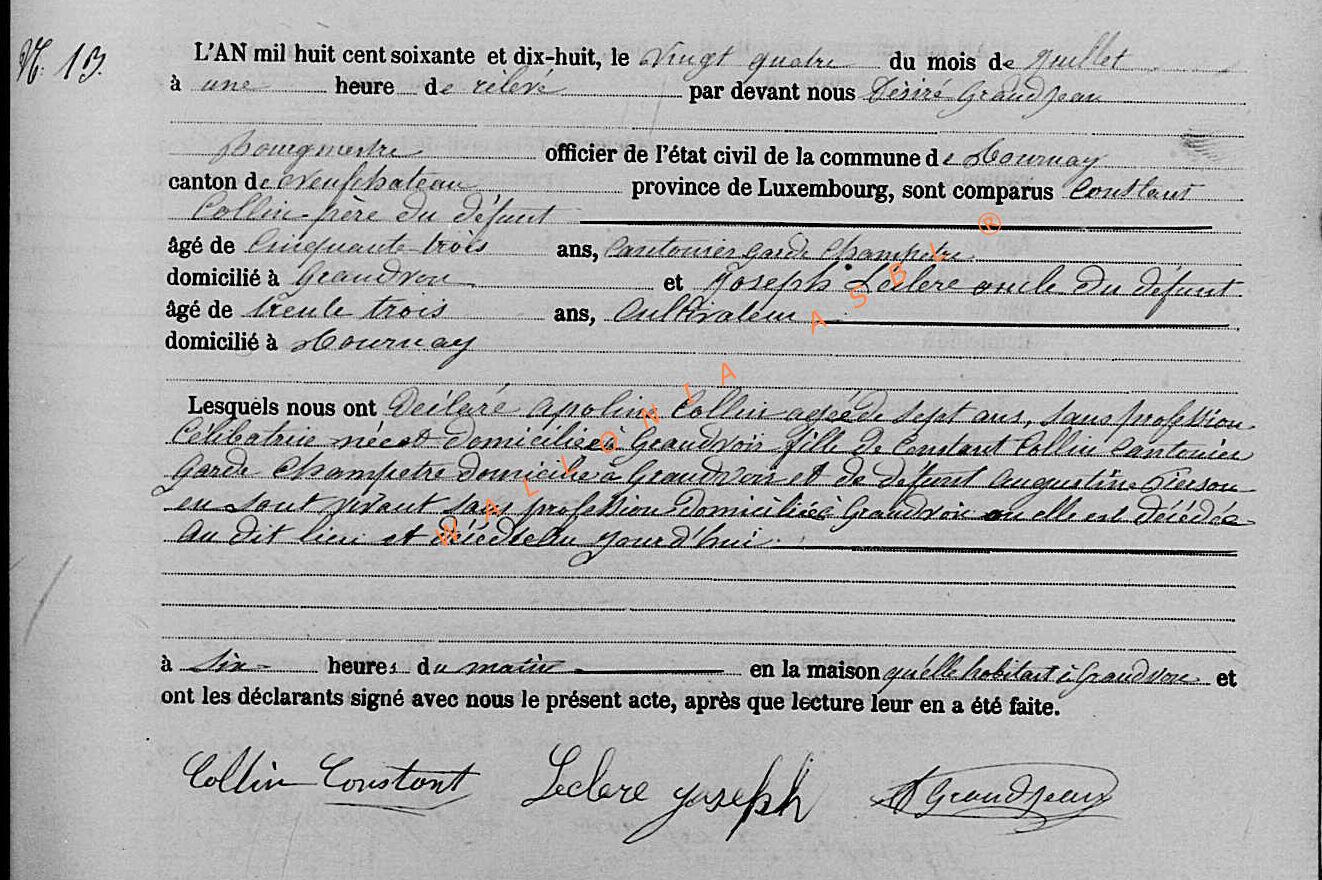 N. 13.
L'AN mil huit cent soixante et dix-huit, le vingt quatre du mois de Juillet
à une heure de rélévé par devant nous Désiré Grandjean
Bourgmestre officier de l'état civil de la commune de Tournay
canton de Neufchateau province de Luxembourg, sont comparus Constant
Collin père du défunt
âgé de Cinquante trois ans, Cantonier garde Champetre
domicilié à Grandvoir et Joseph Leclere oncle du défunt
âgé de trente trois ans, Cultivateur
domicilié à Tournay
Lesquels nous ont Déclaré Apolin Collin agée de sept ans, sans profession
Célibatrice née et domiciliée à Grandvoir fille de Constant Collin Cantonier
Garde Champetre domicilié à Grandvoir et de défunt Augustine Pierson
en sont vivant sans profession domiciliée à Grandvoir ou elle est décédée
au dit lieu et décédée au jourd'hui
à six heures du matin en la maison qu'elle habitait à Grandvoir et
ont les déclarants signé avec nous le présent acte, après que lecture leur en a été faite.
Collin Constant Leclere Joseph Grandjean
WALLONIA ASBL ®